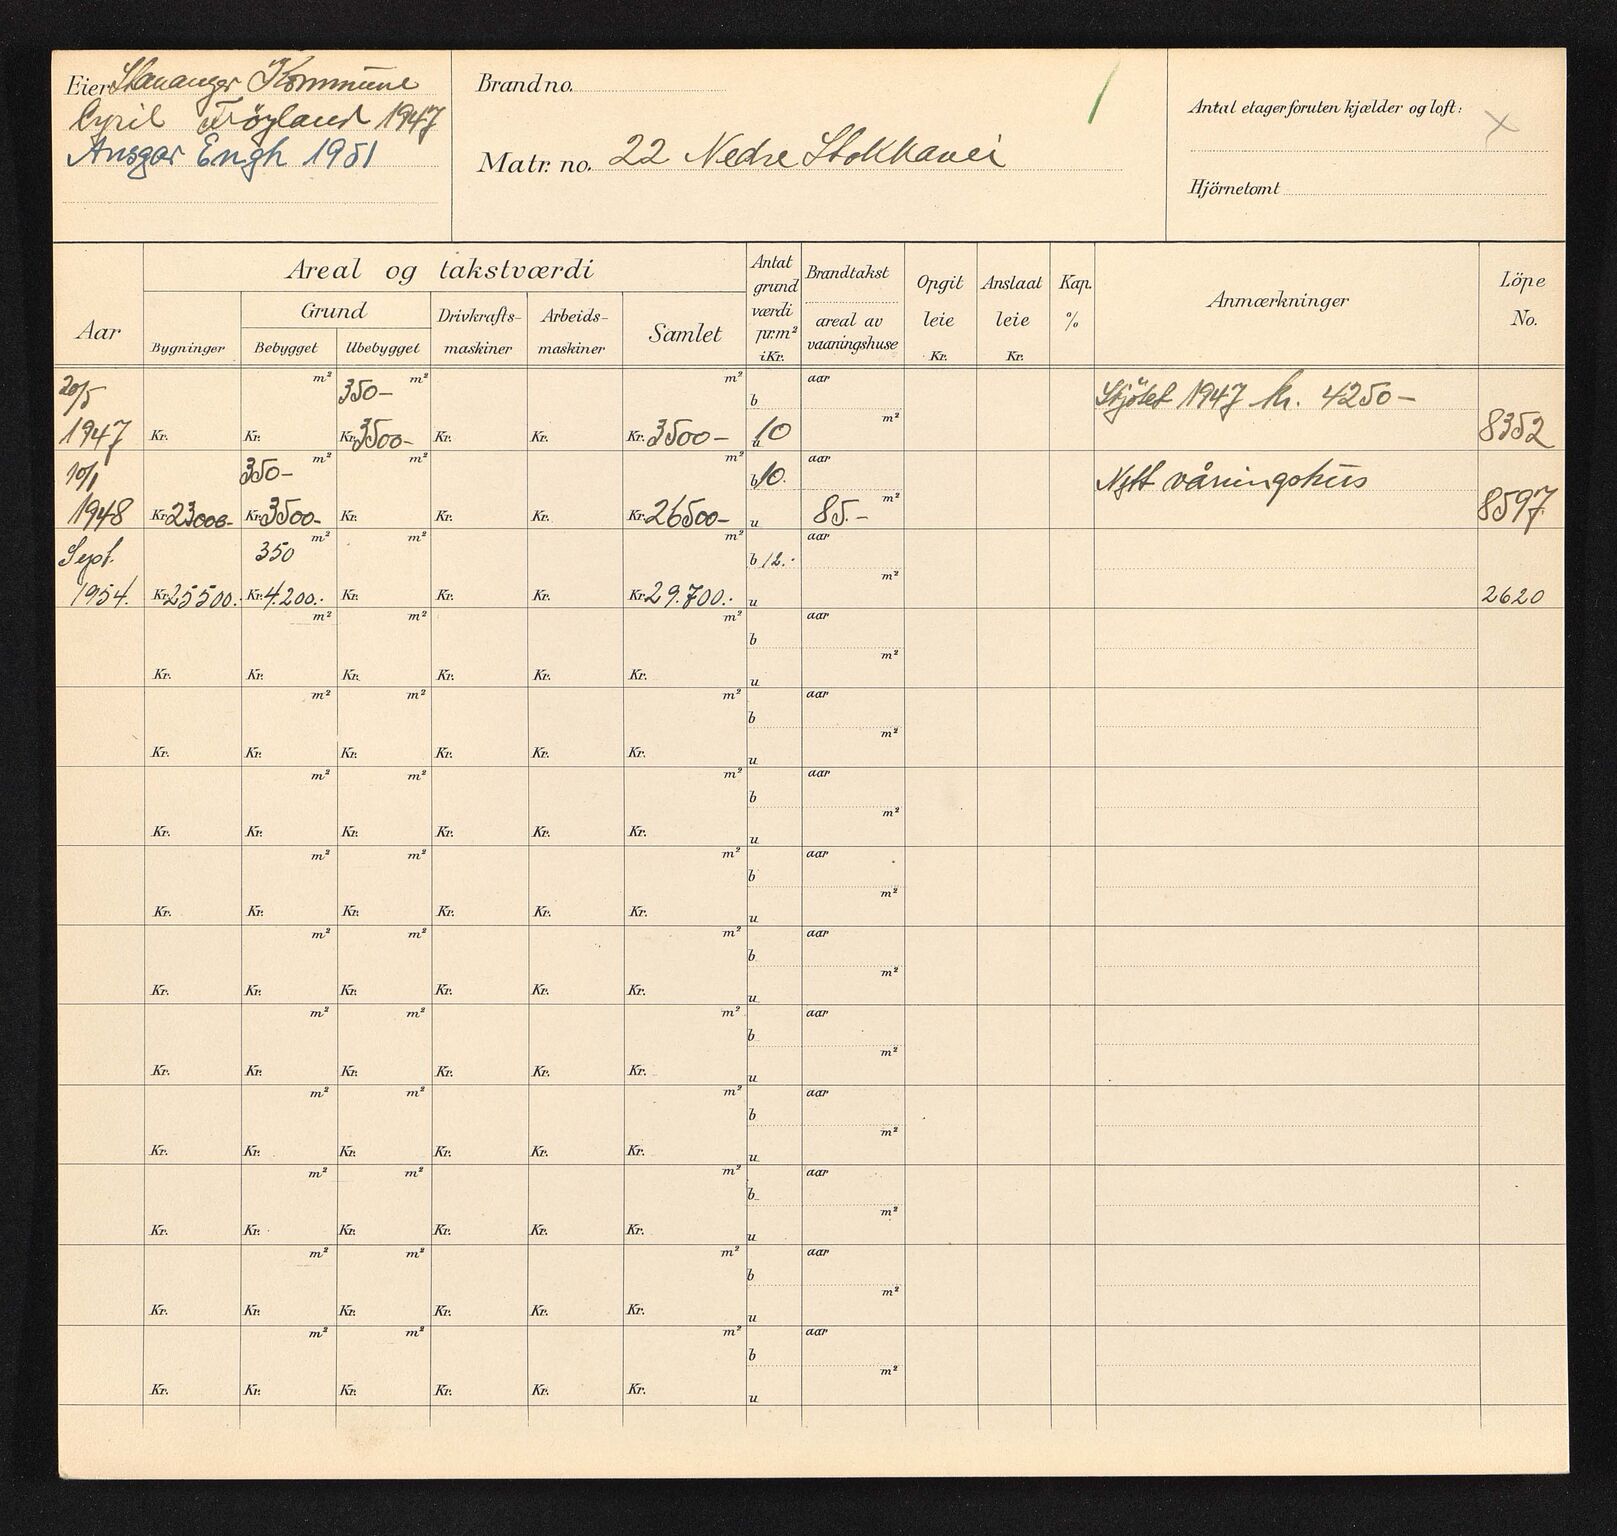 Eier Stavanger Kommune
Cyril Fröyland 1947
Ansgar Engh 1951
Brandno.
Matr. no. 22 Nedre Stokkavei
Antal etager foruten kjælder og loft:
Hjörnetomt
Aar
Areal og takstværdi
Bygninger
Grund
Bebygget
Ubebygget
Drivkrafts-
maskiner
Arbeids-
maskiner
Samlet
Antat
grund
værdi
pr. m²
i Kr.
Brandtakst
areal av
vaaningshuse
Opgit
leie
Kr.
Anslaat
leie
Kr.
Kap.
%
Anmærkninger
Löpe
No.
20/5 m² 350- m² m² b aar Skjötet 1947 kr. 4250-
1947 Kr. Kr. Kr. 3500- Kr. Kr. Kr. 3500- u 10 m² 8352
10/1 350- m² m² m² b 10. aar Nytt våningshus
1948 Kr. 23000- Kr. 3500- Kr. Kr. Kr. Kr. 26500- u 85.- m² 8597
Sept. 350 m² m² m² b 12.- aar
1954. Kr. 25500.- Kr. 4.200.- Kr. Kr. Kr. Kr. 29.700.- u m² 2620
m² m² m² b aar
Kr. Kr. Kr. Kr. Kr. Kr. u m²
m² m² m² b aar
Kr. Kr. Kr. Kr. Kr. Kr. u m²
m² m² m² b aar
Kr. Kr. Kr. Kr. Kr. Kr. u m²
m² m² m² b aar
Kr. Kr. Kr. Kr. Kr. Kr. u m²
m² m² m² b aar
Kr. Kr. Kr. Kr. Kr. Kr. u m²
m² m² m² b aar
Kr. Kr. Kr. Kr. Kr. Kr. u m²
m² m² m² b aar
Kr. Kr. Kr. Kr. Kr. Kr. u m²
m² m² m² b aar
Kr. Kr. Kr. Kr. Kr. Kr. u m²
m² m² m² b aar
Kr. Kr. Kr. Kr. Kr. Kr. u m²
m² m² m² b aar
Kr. Kr. Kr. Kr. Kr. Kr. u m²